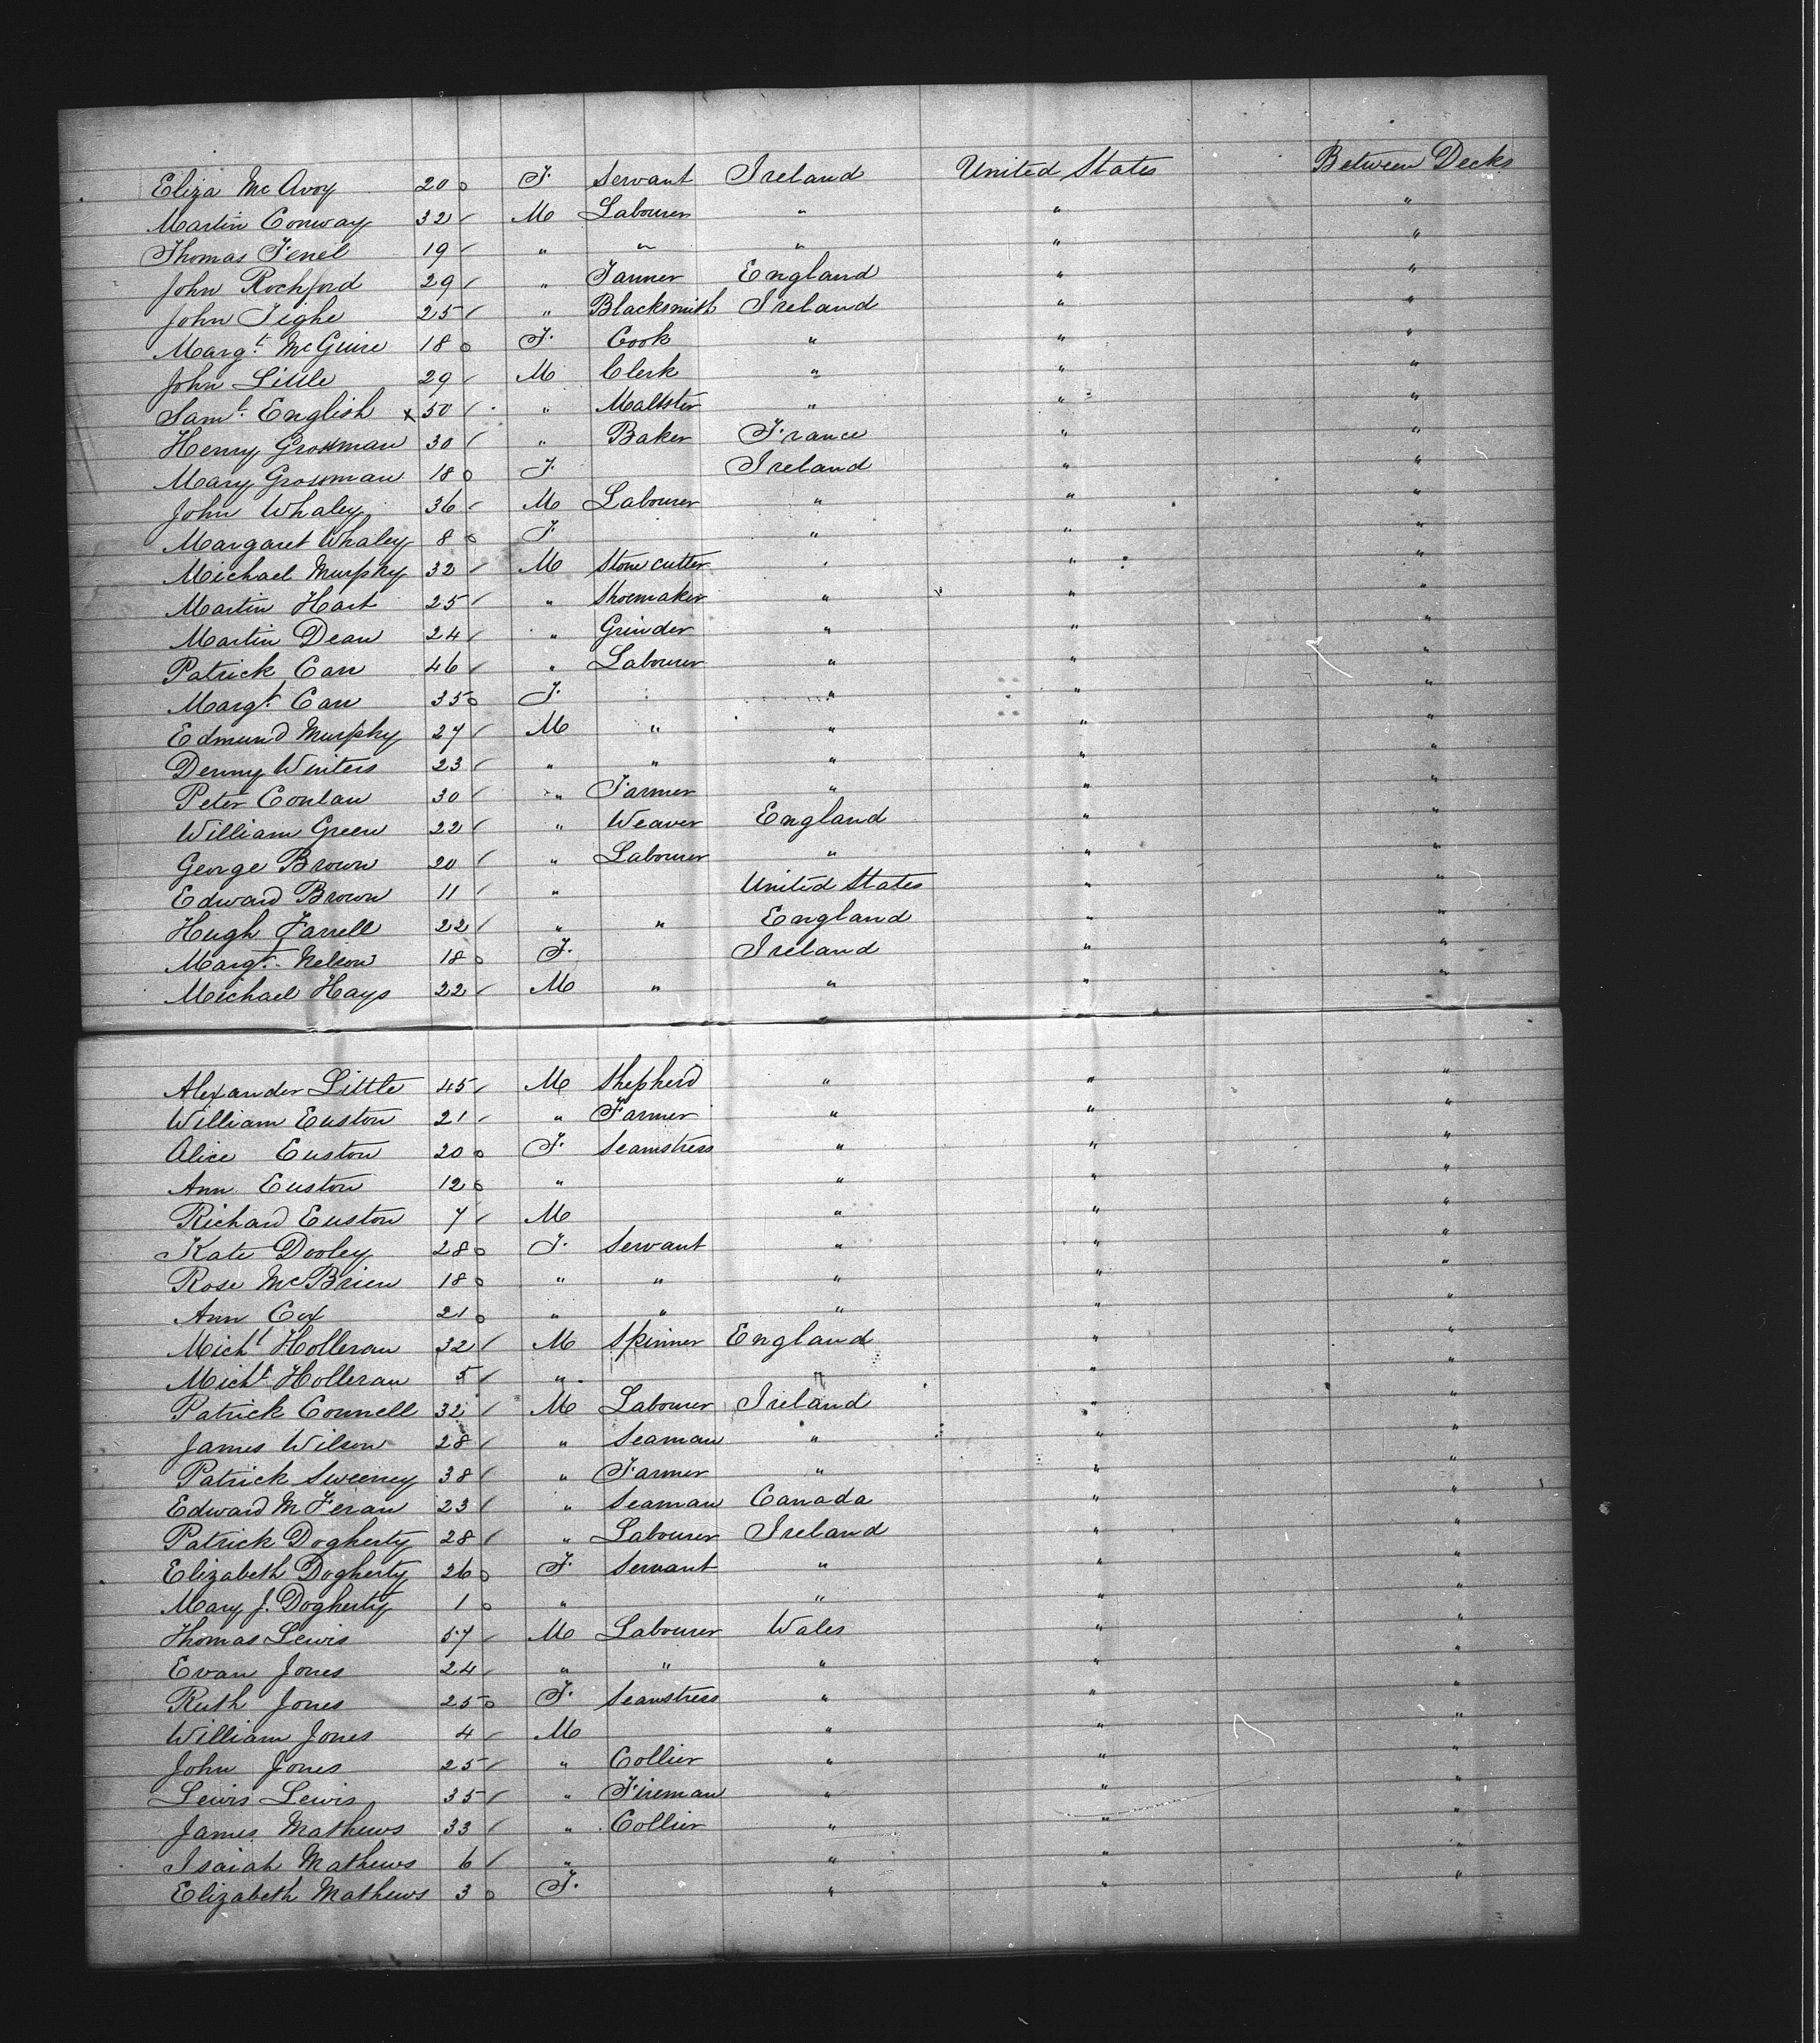 Eliza McAvoy 20 F. Servant Ireland United States Between Decks
Martin Conway 32 M Labourer " " "
Thomas Fenel 19 " " " " "
John Rochford 29 " Farmer England " "
John Tighe 25 " Blacksmith Ireland " "
Margt. McGuire 18 F. Cook " " "
John Little 29 M Clerk " " "
Saml. English x 50 " Maltster " " "
Henry Grossman 30 " Baker France " "
Mary Grossman 18 F. Ireland " "
John Whaley 36 M Labourer " " "
Margaret Whaley 8 F. " " "
Michael Murphy 32 M Stone cutter " " "
Martin Hart 25 " Shoemaker " " "
Martin Dean 24 " Grinder " " "
Patrick Carr 46 " Labourer " " "
Margt. Carr 35 F. " " "
Edmund Murphy 27 M " " " "
Denny Winters 23 " " " " "
Peter Conlan 30 " Farmer " " "
William Green 22 " Weaver England " "
George Brown 20 " Labourer " " "
Edward Brown 11 " United States " "
Hugh Farrell 22 " " England " "
Margt. Nelson 18 F. Ireland " "
Michael Hays 22 M " " " "
Alexander Little 45 M Shepherd " " "
William Euston 21 " Farmer " " "
Alice Euston 20 F. Seamstress " " "
Ann Euston 12 " " " "
Richard Euston 7 M " " "
Kate Dooley 28 F. Servant " " "
Rose McBrien 18 " " " " "
Ann Cox 21 " " " " "
Michl Holleran 32 M Spinner England " "
Michl. Holleran 5 " " " "
Patrick Connell 32 M Labourer Ireland " "
James Wilson 28 " Seaman " " "
Patrick Sweeney 38 " Farmer " " "
Edward McFeran 23 " Seaman Canada " "
Patrick Dogherty 28 " Labourer Ireland " "
Elizabeth Dogherty 26 F. Servant " " "
Mary J. Dogherty 1 " " " "
Thomas Lewis 57 M Labourer Wales " "
Evan Jones 24 " " " " "
Ruth Jones 25 F. Seamstress " " "
William Jones 4 M " " "
John Jones 25 " Collier " " "
Lewis Lewis 35 " Fireman " " "
James Mathews 33 " Collier " " "
Isaiah Mathews 6 " " " "
Elizabeth Mathews 3 F. " " "